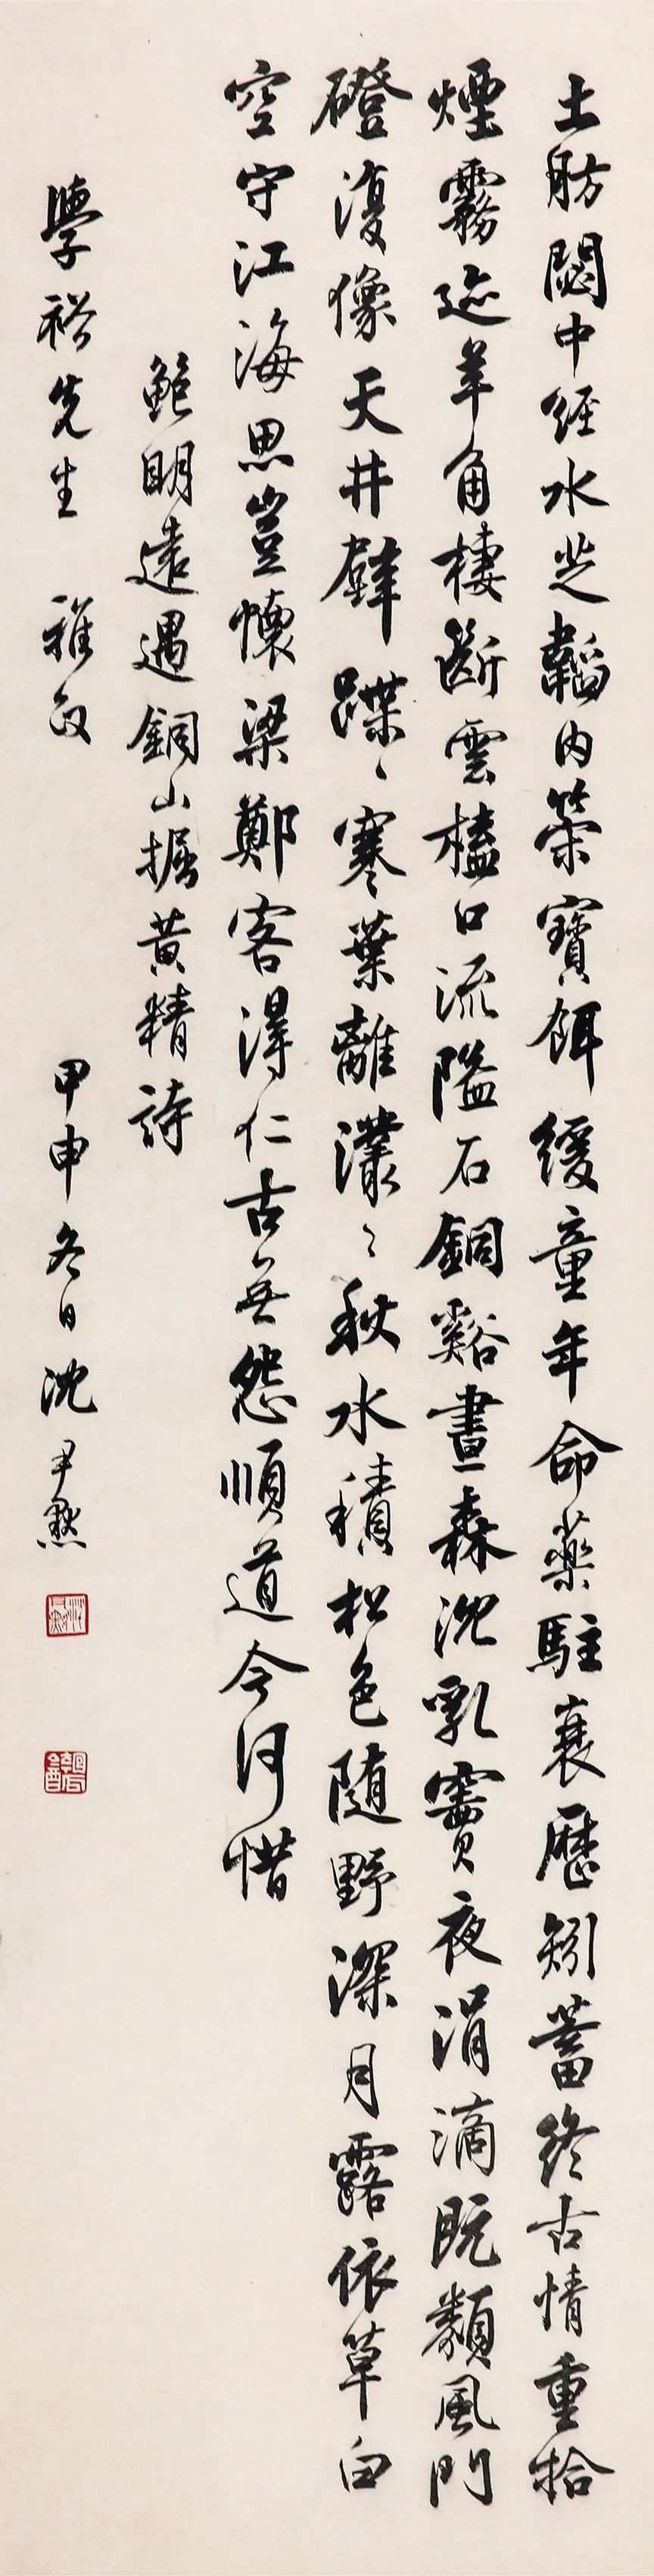 土肪閟中經水芝韜內策寶餌緩童年命藥駐衰歷矧蓄終古情重拾
煙霧迹羊角棲斷雲榼口流隘石銅谿晝森沈乳竇夜涓滴既類風門
磴復像天井壁蹀〻寒葉離灇〻秋水積松色隨野深月露依草白
空守江海思豈懷梁鄭客得仁古無怨順道今何惜
鮑明遠遇銅山掘黃精詩
學裕先生 雅政 甲申冬日沈尹默